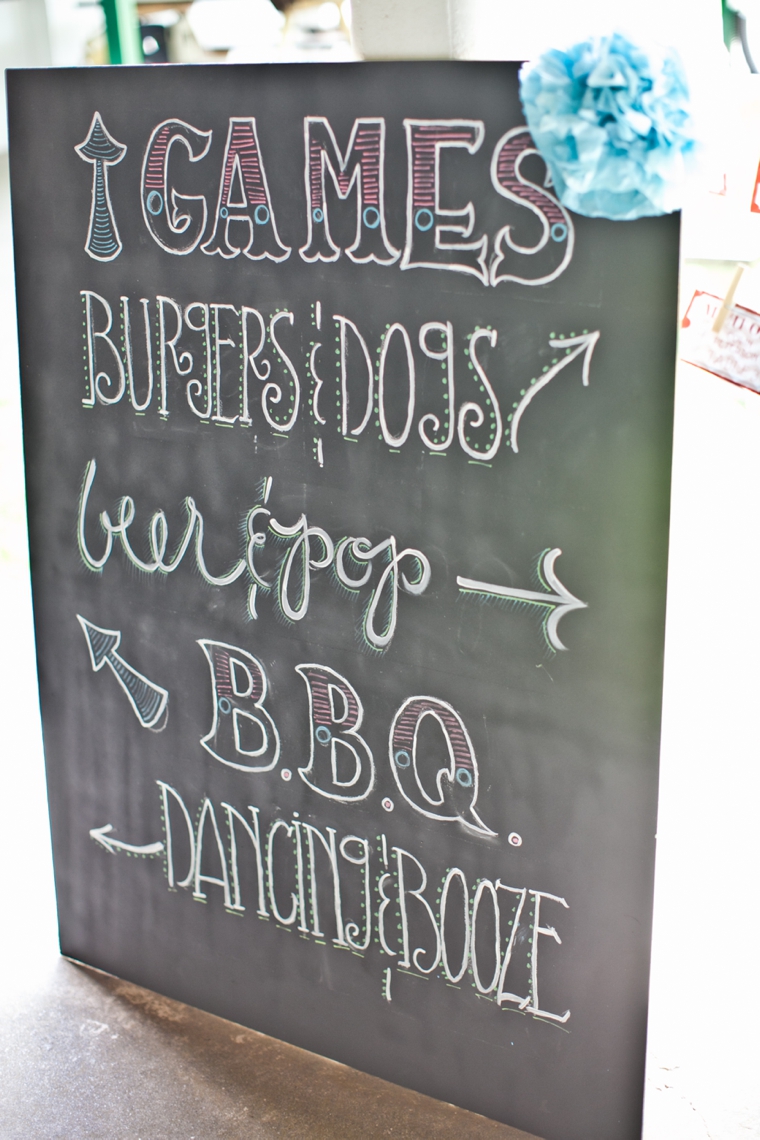 ↑ GAMES
BURGERS & DOGS ↗
beer & pop →
↖ B.B.Q.
← DANCING & BOOZE